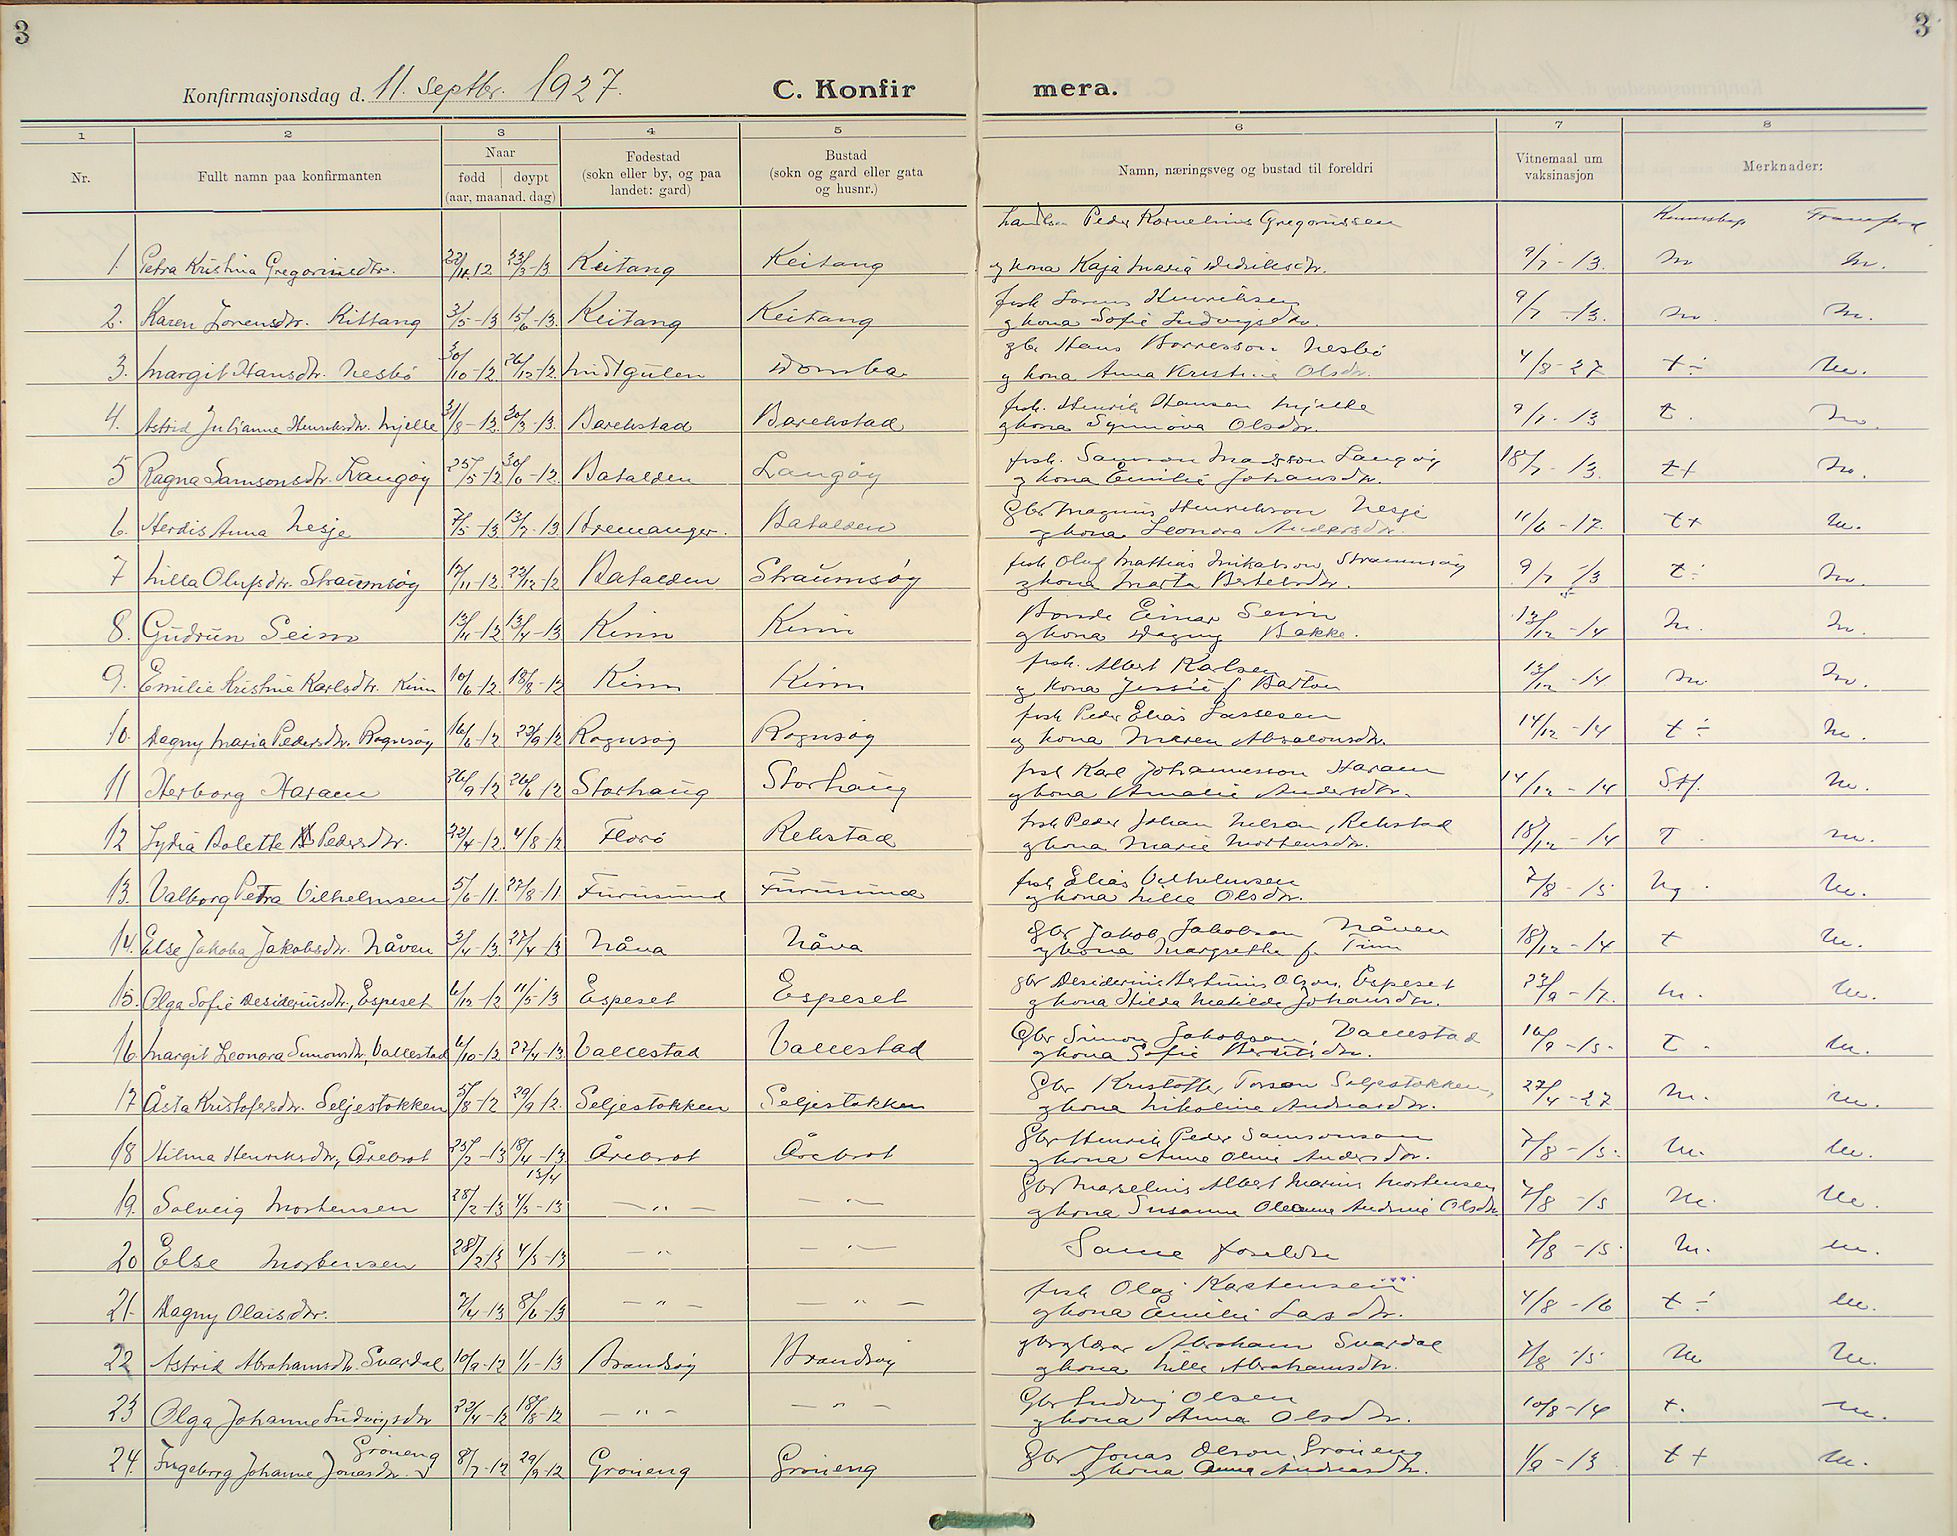 3
3
Konfirmasjonsdag d. 11. Septbr. 1927.
C. Konfir
mera.
1 2 3 4 5 6 7 8
Nr.
Fullt namn paa konfirmanten
Naar
fødd
døypt
(aar, maanad. dag)
Fødestad
(sokn eller by, og paa
landet: gard)
Bustad
(sokn og gard eller gata
og husnr.)
Namn, næringsveg og bustad til foreldri
Vitnemaal um
vaksinasjon
Merknader:
Peder Kornelius Gregoriussen
Kunnskap
1. Petra Kristina Gregoriusdtr. 22/11-12 23/3-13 Keitang Keitang
og kona Kaja Maria Didriksdtr. 9/7-13. M M.
fisk Lorens Henriksen
2. Karen Lorensdtr. Kittang 3/5-13 15/6-13. Keitang Keitang
og kona Sofie Ludvigsdtr. 9/7-13. M. M.
gbr Hans Borresson Nesbø
3. Margit Hansdtr. Nesbø 30/10-12. 26/12-12. Midtgulen Domba
og kona Anna Kristine Olsdtr. 4/8-27 t÷ M.
fisk. Henrik Hansen Mjelle
4. Astrid Julianne Henriksdtr. Mjelle 31/8-12. 30/3-13. Barekstad Barekstad
og kona Synnøva Olsdtr. 9/7-13 t. M.
fisk. Samson Madsson Langøy
5 Ragna Samsonsdtr. Langøy 25/5-12 30/6-12. Batalden Langøy
og kona Emilie Johansdtr. 18/7-13. t+ M.
Gbr Magnus Henrikson Nesje
6. Herdis Anna Nesje 7/5-13 13/7-13 Bremanger. Batalden
og kona Leonora Andersdtr. 11/6-17. t+ M.
fisk Oluf Mathias Mikalson, Straumsøy
7 Milla Olufsdtr. Straumsøy 12/11-12. 22/12-12 Batalden Straumsøy
og kona Marta Bertelsdtr. 9/7-13 t÷ M.
Bonde Einar Seim
8. Gudrun Seim 13/11-12 13/4-13 Kinn Kinn
og kona Dagny Bakke. 13/12-14 M. M.
fisk. Albert Karlsen
9. Emilie Kristine Karlsdtr. Kinn 10/6-12. 18/8-12 Kinn Kinn
og kona Jessie f Barton 13/12-14 M. M.
fisk Peder Elias Lassesen
10. Dagny Maria Pedersdtr. Rognsøy 16/6-12 22/9-12 Rognsøy Rognsøy
og kona Maren Absalonsdtr. 14/12-14 t÷ M.
fisk Karl Johannesson Haram
11 Herborg Haram 26/9-12 26/6-12 Storhaug Storhaug
og kona Amalie Andersdtr. 14/12-14 Stf. M.
fisk Peder Johan Nelson, Rekstad
12 Lydia Bolette Pedersdtr. 22/4-12. 4/8-12 Florø Rekstad
og kona Marie Mortensdtr. 18/12-14 T M.
fisk Elias Vilhelmsen
13. Valborg Petra Vilhelmsen 5/6-11. 27/8-11 Furusund Furusund
og kona Milla Olsdtr. 7/8-15 Ng. M.
gbr Jakob Jakobson Nåven
14. Else Jakoba Jakobsdtr. Nåven 3/4-13. 27/4-13 Nåva Nåva
og kona Margrethe f. Timm 18/12-14 t M.
gbr Desiderius Bertinius Olson, Espeset
15. Olga Sofie Desideriusdtr, Espeset 6/12-12 11/5-13 Espeset Espeset
og kona Hilda Matilde Johansdtr. 23/9-17. M. M.
Gbr Simon Jakobson, Vallestad
16 Margit Leonora Simonsdtr, Vallestad 6/10-12. 27/4-13 Vallestad Vallestad
og kona Sofie Berntsdtr. 16/9-15. T. M.
Gbr Kristoffer Torson Seljestokken,
17 Åsta Kristofersdtr. Seljestokken 5/8-12 29/9-12. Seljestokken Seljestokken
og kona Nikoline Andreasdtr. 27/4-27 M. M.
Gbr Henrik Peder Samsonson
18 Hilma Henriksdtr, Årebrot 25/2-13 18/4-13 Årebrot Årebrot
og kona Anne Oline Andersdtr. 7/8-15. M. M.
13/4
Gbr Marselius Albert Marius Mortensen
19. Solveig Mortensen 28/2-13 4/5-13 — „ — — „ —
og kona Susanne Oleanne Andrine Olsdtr 7/8-15 M. M.
20 Else Mortensen 28/2-13 4/5-13 — „ — — „ —
Same foreldre 7/8-15. M. M.
fisk Olai Karstensen
21. Dagny Olaisdtr. 7/4-13 8/6-13 — „ — — „ —
og kona Emilie Larsdtr. 4/8-16 t÷ M.
Abraham Svardal
22 Astrid Abrahamsdtr. Svardal 10/9-12 1/1-13 Brandsøy Brandsøy
og kona Milla Abrahamsdtr. 7/8-15 M M.
Gbr Ludvig Olsen
23 Olga Johanne Ludvigsdtr 22/4-12 18/8-12 — „ — — „ —
og kona Anna Olsdtr. 10/8-14 t. M.
Grøneng
Gbr Jonas Olson Grøneng
24. Ingeborg Johanne Jonasdtr. 8/7-12 29/9-12 Grøneng Grøneng
og kona Anna Andreasdtr. 1/9-13 t+ M.